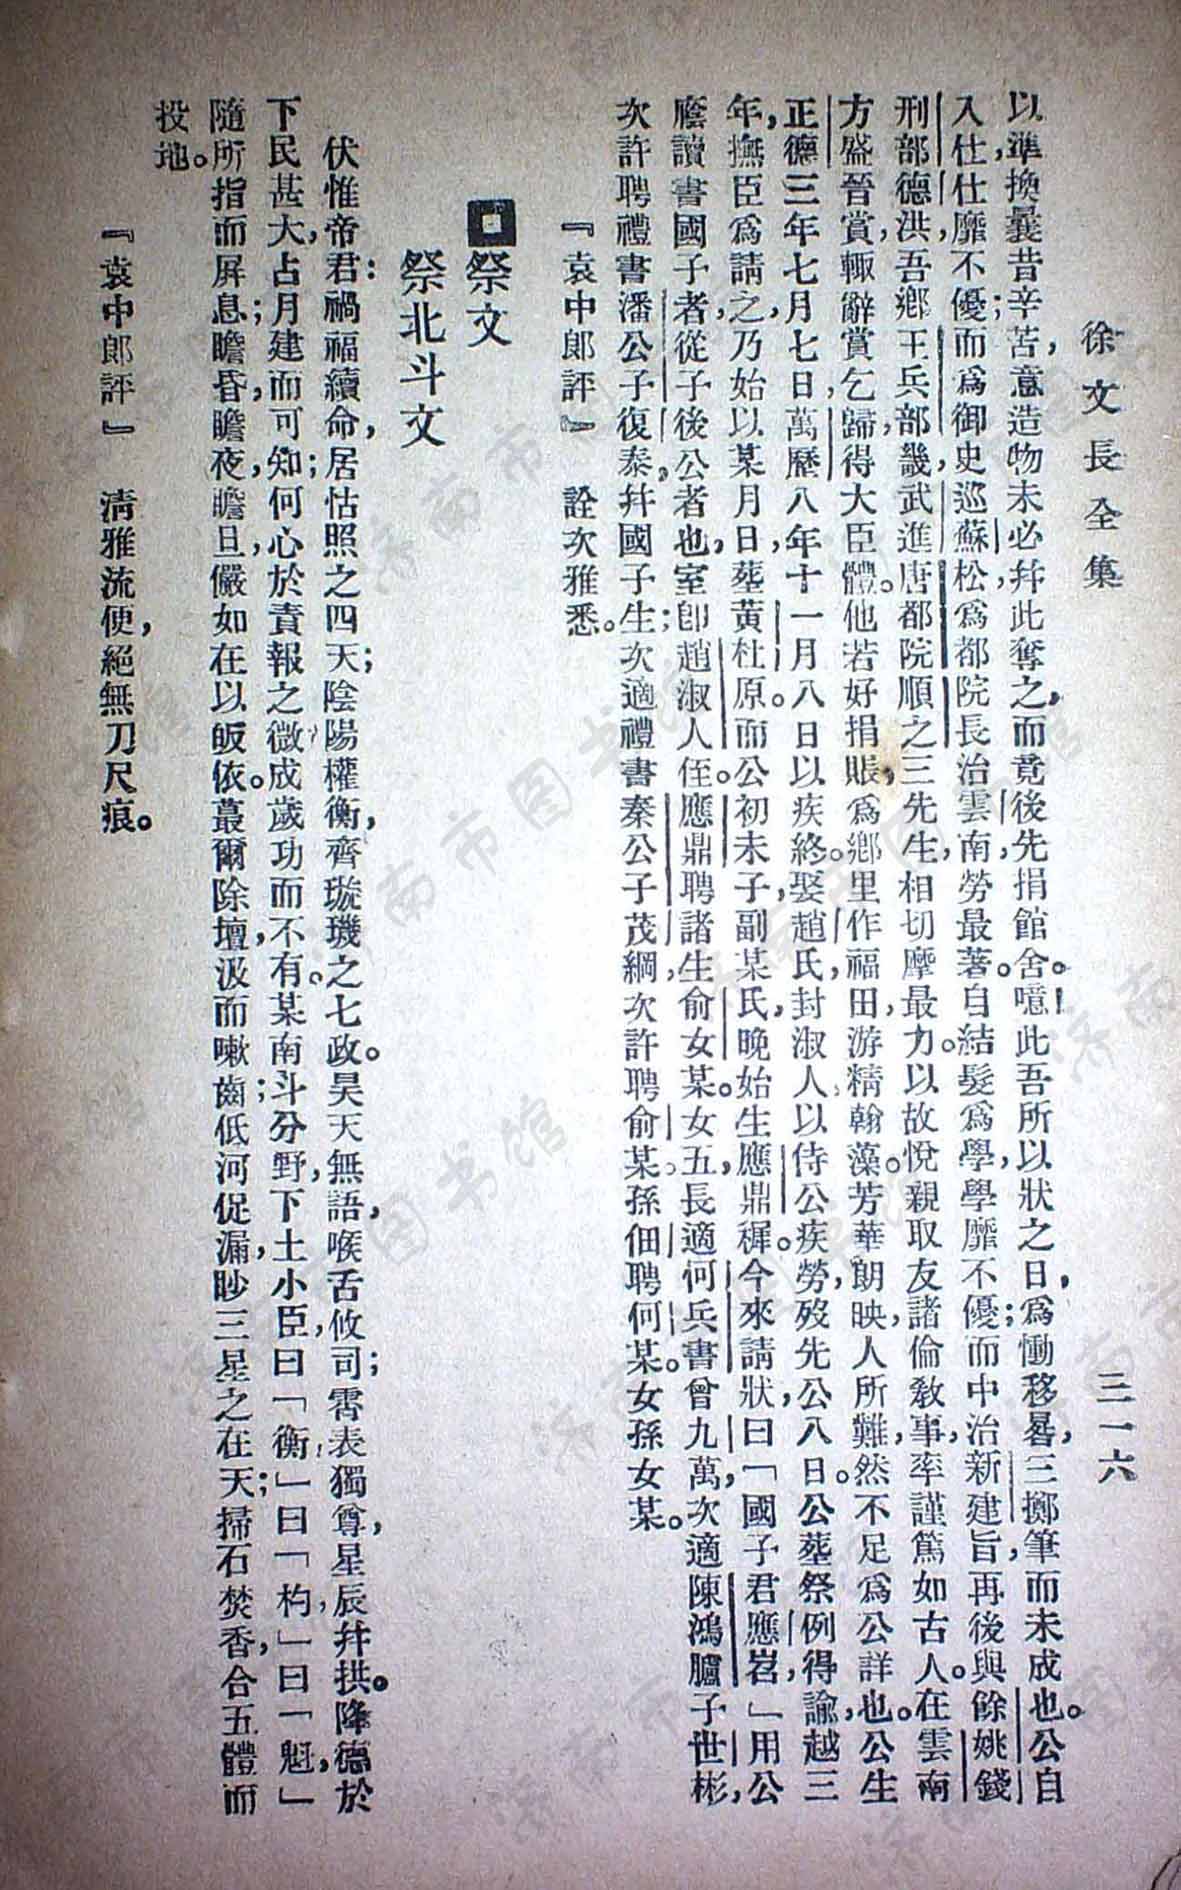 徐文長全集
三一六
以準換曩昔辛苦，意造物未必幷此奪之，而竟後先捐館舍。噫！此吾所以狀之日，爲慟移晷，三擲筆而未成也。公自
入仕，仕靡不優；而爲御史巡蘇松，爲都院長治雲南，勞最著。自結髮爲學，學靡不優；而中治新建旨，再後與餘姚錢
刑部德洪，吾鄉王兵部畿，武進唐都院順之三先生，相切摩最力。以故悅親取友，諸倫敎事，率謹篤如古人。在雲南
方盛晉賞，輒辭賞乞歸，得大臣體。他若好捐賬，爲鄉里作福田，游精翰藻。芳華朗映，人所難，然不足爲公詳也。公生
正德三年七月七日，萬曆八年十一月八日以疾終。娶趙氏，封淑人，以侍公疾勞，歿先公八日。公塟祭例得諭，越三
年，撫臣爲請之，乃始以某月日，塟黃杜原。而公初未子，副某氏，晚始生應鼎穉。今來請狀，曰「國子君應岩」用公
廕讀書國子者，從子後公者也，室卽趙淑人侄。應鼎聘諸生俞女某。女五，長適何兵書曾九萬，次適陳鴻臚子世彬，
次許聘禮書潘公子復泰，幷國子生；次適禮書秦公子茂綱，次許聘俞某。孫佃聘何某。女孫女某。
『袁中郎評』　詮次雅悉。
祭文
祭北斗文
伏惟帝君：禍福續命，居怙照之四天；陰陽權衡，齊璇璣之七政。昊天無語，喉舌攸司；霄表獨尊，星辰幷拱。降德於
下民甚大，占月建而可知；何心於責報之微，成歲功而不有。某南斗分野，下土小臣，曰「衡」曰「杓」曰「魁」，
隨所指而屏息；瞻昏瞻夜瞻旦，儼如在以皈依。蕞爾除壇，汲而嗽齒；低河促漏，眇三星之在天；掃石焚香，合五體而
投地。
『袁中郎評』　清雅流便，絕無刀尺痕。